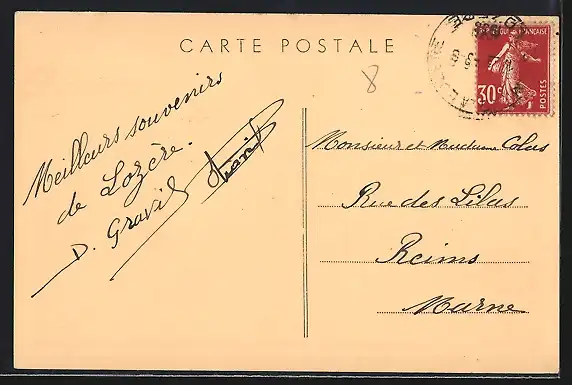 CARTE POSTALE
RÉPUBLIQUE FRANÇAISE
30c
POSTES
8
Meilleurs souvenirs
de Lozère.
D. Gravil
Monsieur et Madame Colas
Rue des Lilas
Reims
Marne